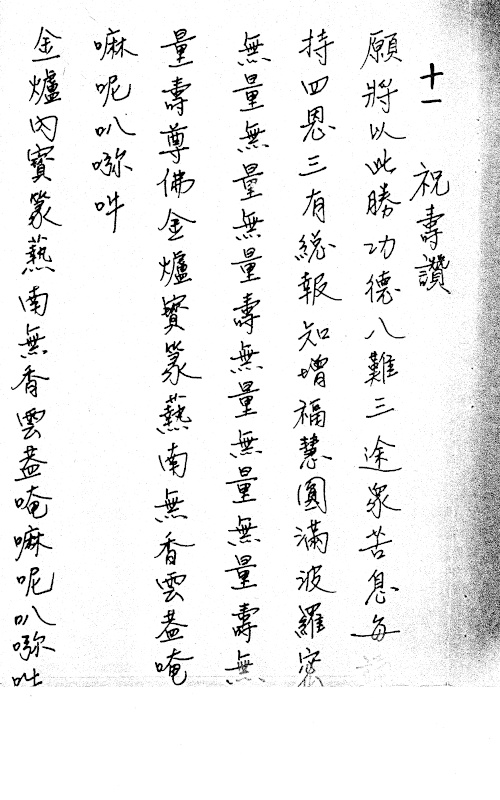 十一 祝壽讚
願將以此勝功德八難三途衆苦息每
持四恩三有總報知增福慧圓滿波羅密
無量無量無量壽無量無量無量壽無
量壽尊佛金爐寶篆爇南無香雲蓋唵
嘛呢叭嘛吽
金爐內寶篆爇南無香雲蓋唵嘛呢叭嘛吽